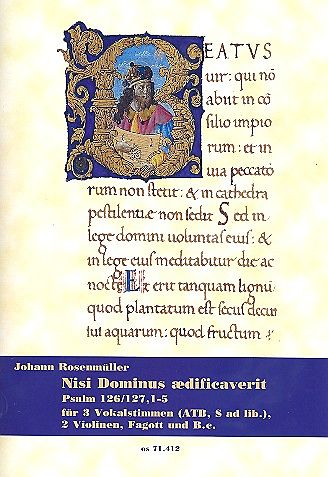 BEATVS
uir: qui nō
abiit in cō
silio impio
rum: et in
uia peccatō
rum non stetit: & in cathedra
pestilentie non sedit Sed in
lege domini voluntas eius: &
in lege eius meditabitur die ac
nocte Et erit tanquam lignū
quod plantatum est secus decur
sus aquarum: quod fructum
Johann Rosenmüller
Nisi Dominus ædificaverit
Psalm 126/127,1-5
für 3 Vokalstimmen (ATB, S ad lib.),
2 Violinen, Fagott und B.c.
os 71.412